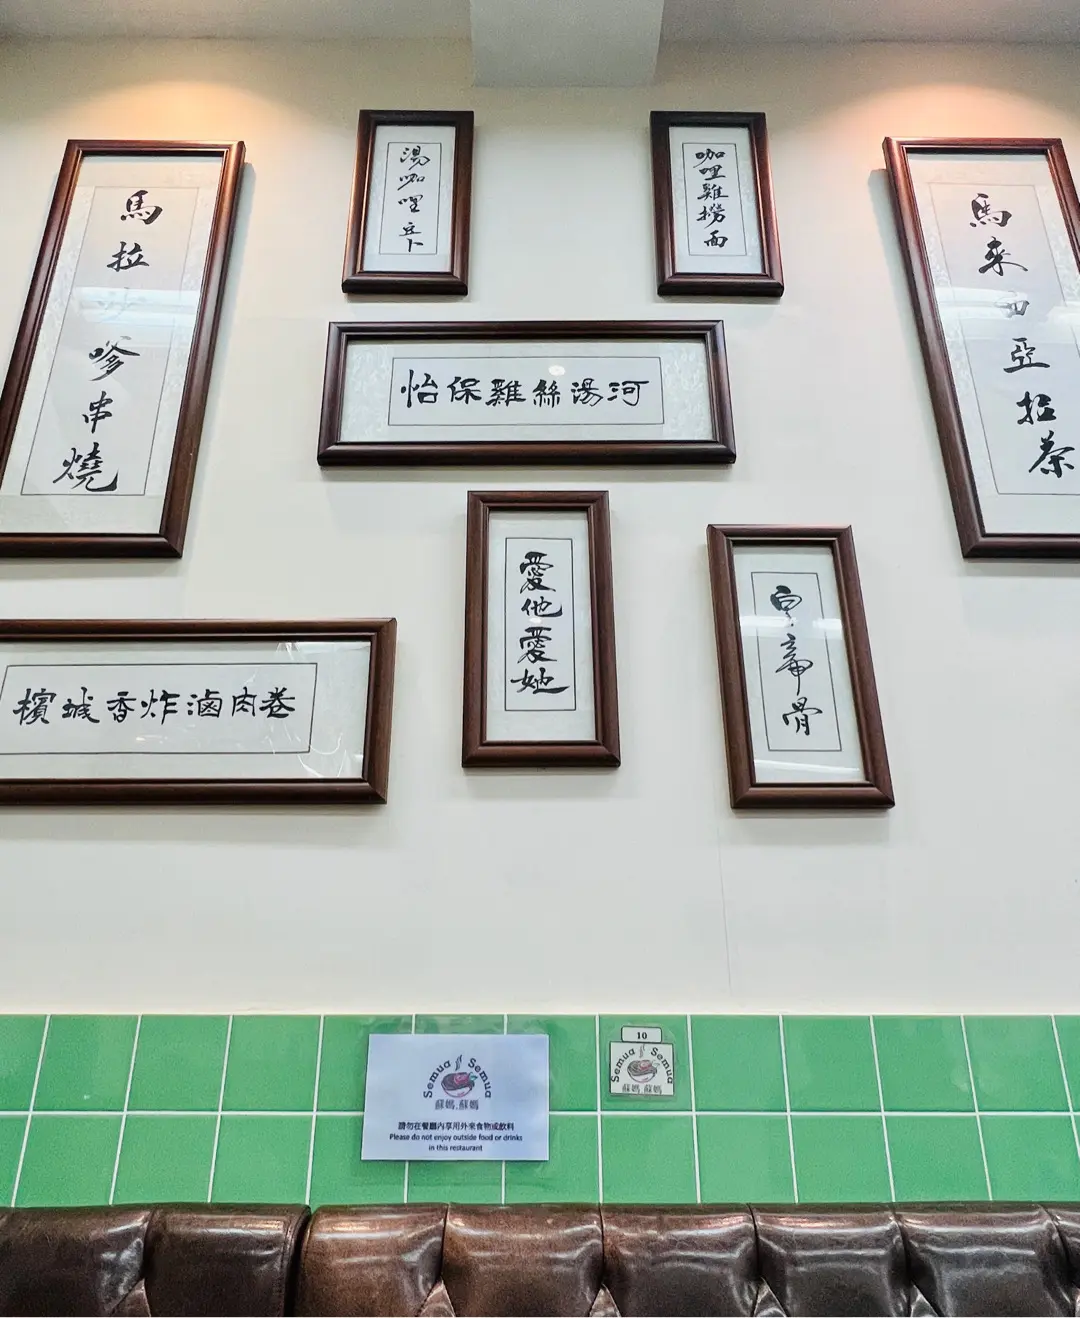 馬拉沙嗲串燒
湯咖哩立卜
咖哩雞撈面
馬來西亞拉茶
怡保雞絲湯河
愛他愛她
皇帝骨
檳城香炸滷肉卷
10
Semua Semua
蘇媽.蘇媽
Semua Semua
蘇媽.蘇媽
請勿在餐廳內享用外來食物或飲料
Please do not enjoy outside food or drinks
in this restaurant